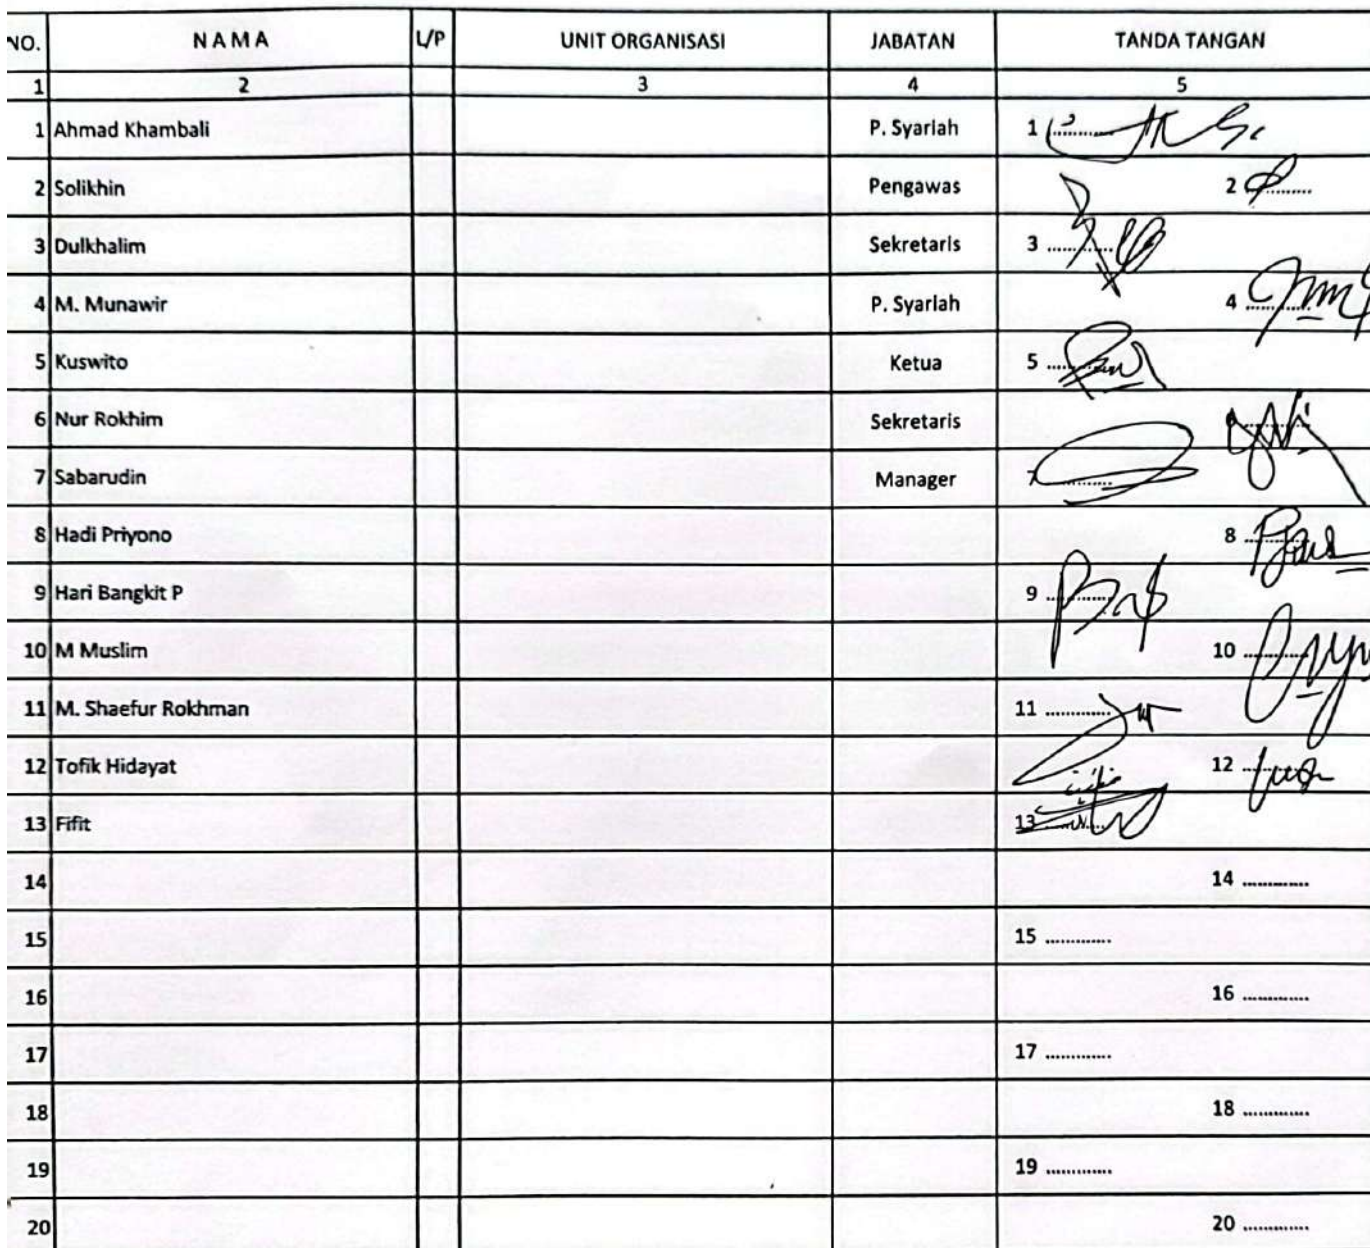 NO. N A M A L/P UNIT ORGANISASI JABATAN TANDA TANGAN
1 2 3 4 5
1 Ahmad Khambali P. Syariah 1 ............
2 Solikhin Pengawas 2 ............
3 Dulkhalim Sekretaris 3 ............
4 M. Munawir P. Syariah 4 ............
5 Kuswito Ketua 5 ............
6 Nur Rokhim Sekretaris 6 ............
7 Sabarudin Manager 7 ............
8 Hadi Priyono 8 ............
9 Hari Bangkit P 9 ............
10 M Muslim 10 ............
11 M. Shaefur Rokhman 11 ............
12 Tofik Hidayat 12 ............
13 Fifit 13 ............
14 14 ............
15 15 ............
16 16 ............
17 17 ............
18 18 ............
19 19 ............
20 20 ............